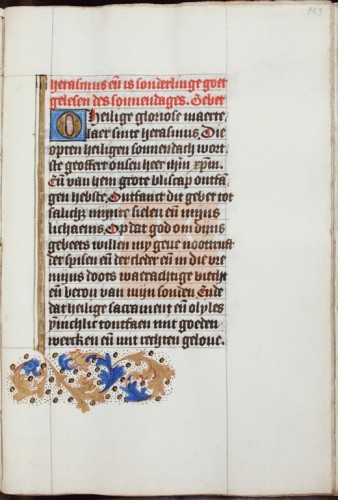 herasmus en̄ is sonderlinge goet
gelesen des sonnendages. Gebet
O Heilige gloriose maerte
laer sinte herasmus. Die
opten heiligen sonnendach wort
ste geoffert onsen heer ihm xpm̄.
En̄ van hem grote bliscap ontfā
gen hebste. Ontfanct dit gebet tot
salich mijnre sielen en̄ mijns
lichaems. Op dat god om dijns
gebeets willen my geue nottrufft
der spisen en̄ der cleder en̄ in die vre
mijns doots waerachtige biecht
en̄ berou van mijn sonden Ende
dat heilige sacrament en̄ olyses
ynnichlic tontfaen mit goeden
wercken en̄ mit rechten geloue.